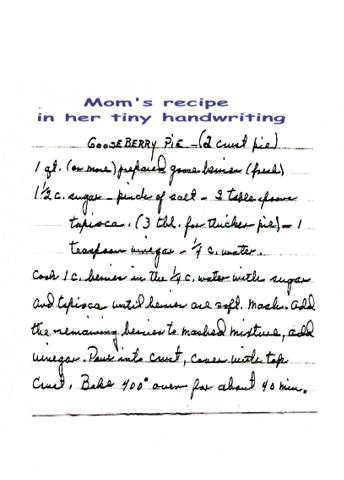 Mom's recipe
in her tiny handwriting
GOOSEBERRY PIE - (2 crust pie)
1 qt. (or more) prepared gooseberries (fresh)
1 1/2 c. sugar - pinch of salt - 2 tablespoons
tapioca. (3 tbl. for thicker pie) - 1
teaspoon vinegar - 1/4 c. water.
Cook 1 c. berries in the 1/4 c. water with sugar
and tapioca until berries are soft. Mash. Add
the remaining berries to mashed mixture, add
vinegar. Pour into crust, cover with top
crust. Bake 400° oven for about 40 min.